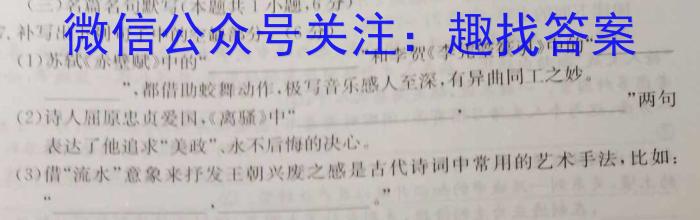 (三)名篇名句默写(本题共1小题,6分)
微信公众号关注：趣找答案
(1)苏轼《赤壁赋》中的“
”,都借助蛟舞动作,极写音乐感人至深,有异曲同工之妙。
(2)诗人屈原忠贞爱国,《离骚》中“ , ”两句
表达了他追求“美政”、永不后悔的决心。
(3)借“流水”意象来抒发王朝兴废之感是古代诗词中常用的艺术手法,比如:
“ , 。”